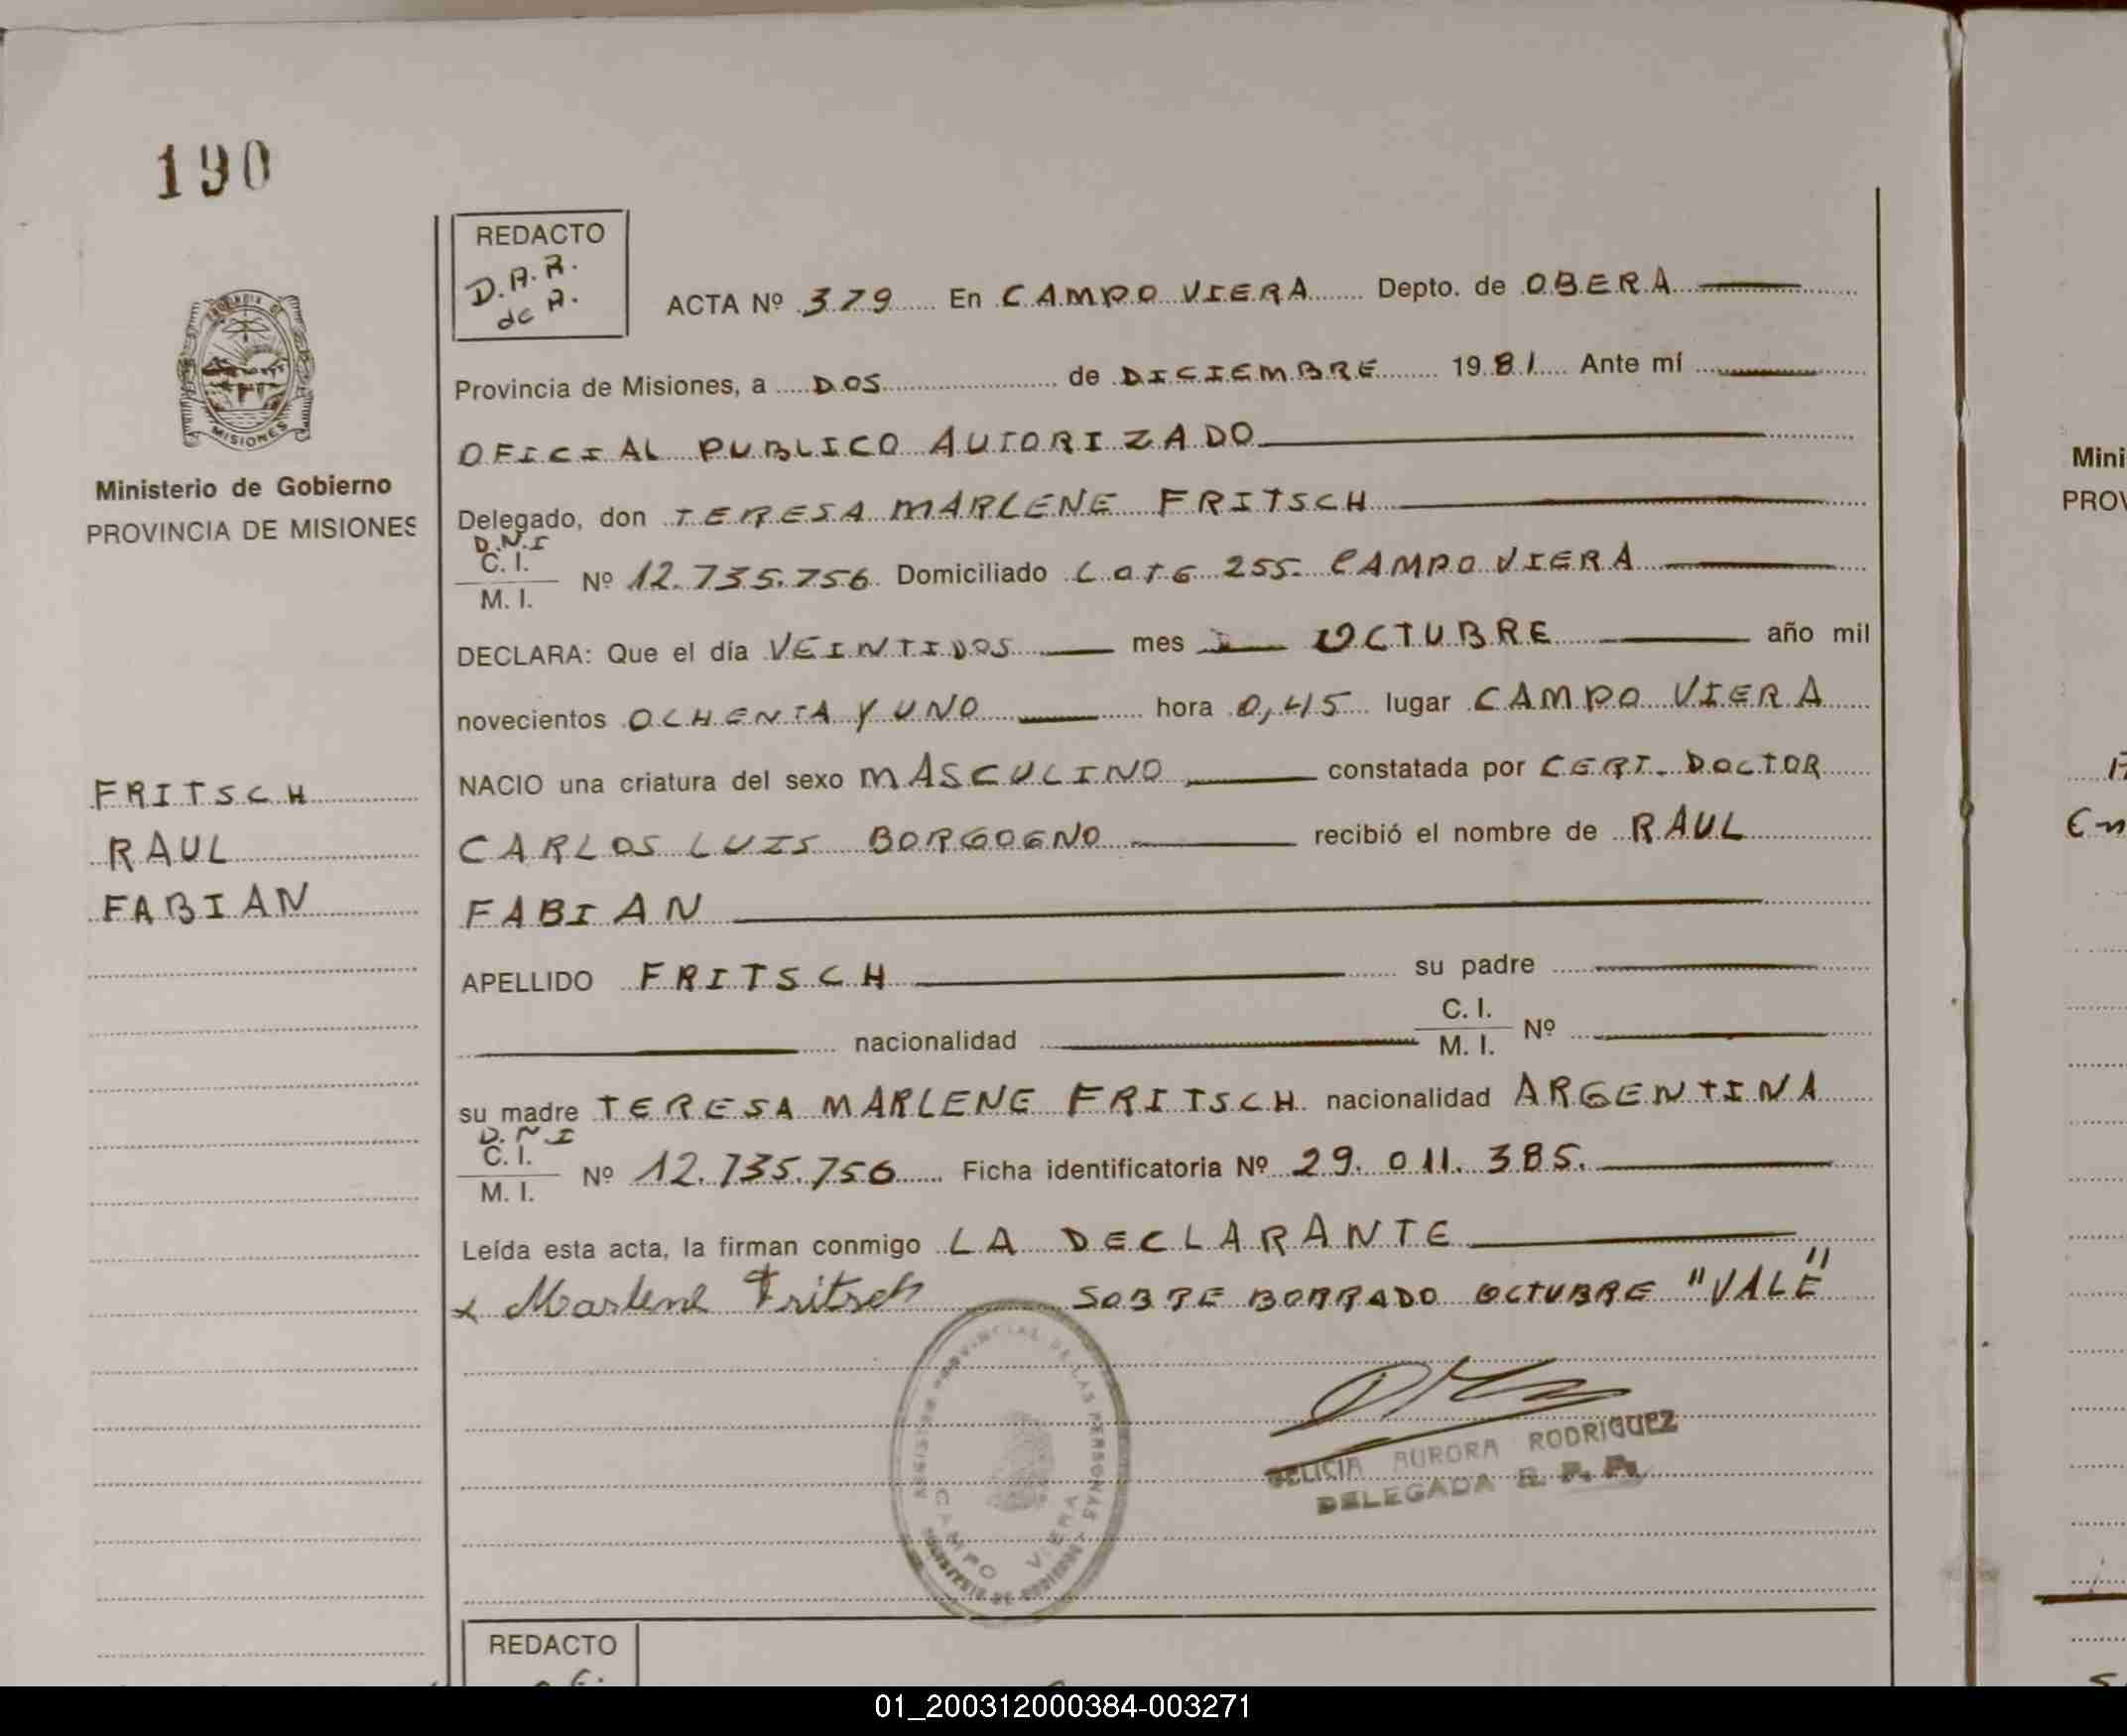 190
REDACTO
D.A.R.
de A.
ACTA Nº 379 En CAMPO VIERA Depto. de OBERA
Provincia de Misiones, a DOS de DICIEMBRE 1981 Ante mí
OFICIAL PUBLICO AUTORIZADO
MISIONES
Ministerio de Gobierno
PROVINCIA DE MISIONES
Delegado, don TERESA MARLENE FRITSCH
D.N.I
C.I.
M.I. Nº 12.735.756 Domiciliado LOTE 255. CAMPO VIERA
DECLARA: Que el día VEINTIDOS mes OCTUBRE año mil
novecientos OCHENTA Y UNO hora 0,45 lugar CAMPO VIERA
NACIO una criatura del sexo MASCULINO constatada por CERT. DOCTOR
CARLOS LUIS BORGOGNO recibió el nombre de RAUL
FABIAN
FRITSCH
RAUL
FABIAN
APELLIDO FRITSCH su padre
nacionalidad C.I.
M.I. Nº
su madre TERESA MARLENE FRITSCH nacionalidad ARGENTINA
D.N.I
C.I.
M.I. Nº 12.735.756 Ficha identificatoria Nº 29.011.385.
Leída esta acta, la firman conmigo LA DECLARANTE
x Marlene Fritsch SOBRE BORRADO OCTUBRE "VALE"
PROVINCIAL DE LAS PERSONAS
CAMPO VIERA
AURORA RODRIGUEZ
DELEGADA R. P. P.
REDACTO
Mini
PROV
01_200312000384-003271